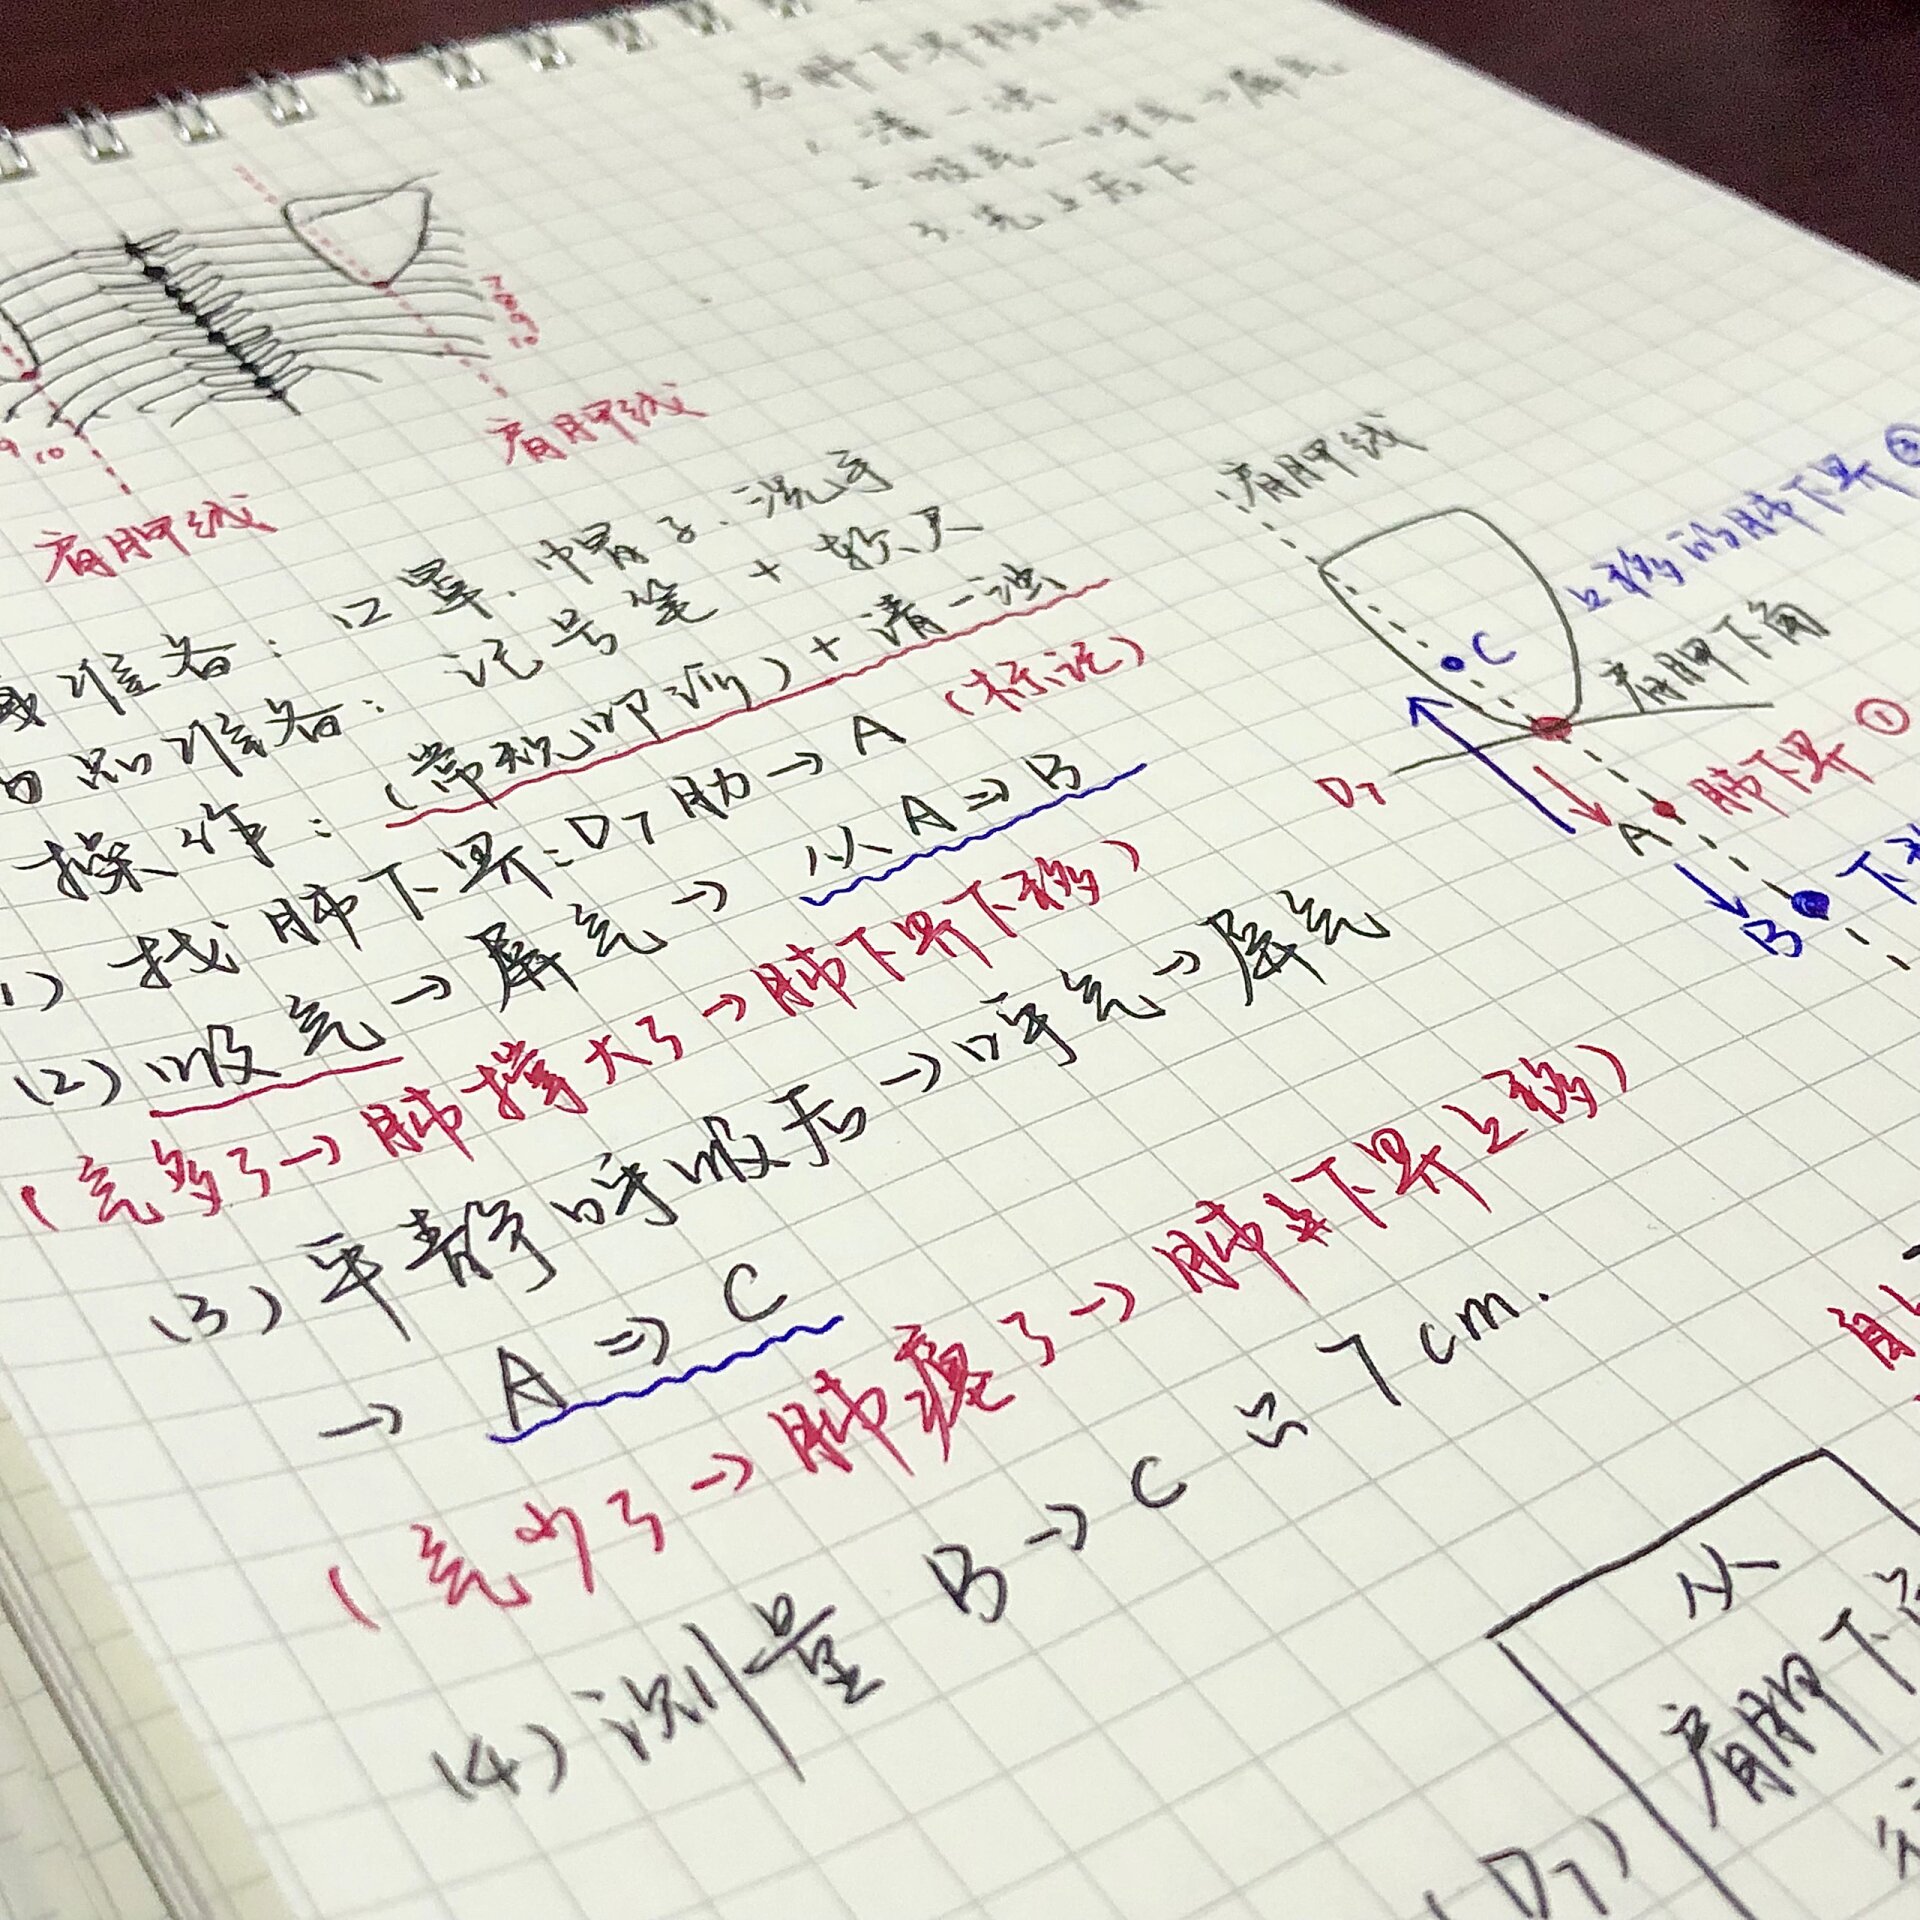 右肺下界移动度
1. 清→浊
2. 吸气→呼气→屏气
3. 先上后下
7 8 9 10
9 10
肩胛线
肩胛线
准备：口罩.帽子.洗手
品准备：记号笔 + 软尺
操作：(常规叩诊) + 清→浊
(1) 找肺下界：D7肋→A (标记)
(2) 吸气→屏气→从A⇒B
(气多了→肺撑大了→肺下界下移)
(3) 平静呼吸后→呼气→屏气
→ A⇒C
(气少了→肺瘪了→肺下界上移)
(4) 测量 B→C 7cm.
肩胛线
上移的肺下界
C
肩胛下角
D7
肺下界①
A
B
下
从
肩胛下
(D7)